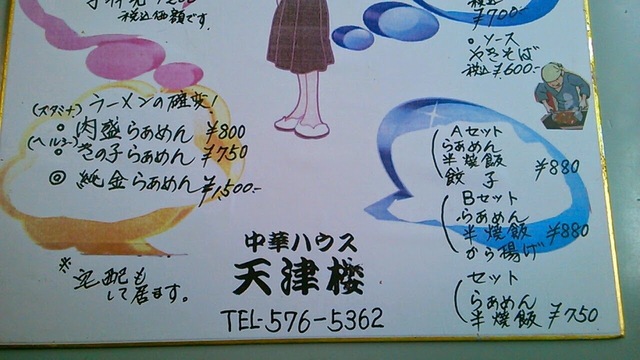 税込価額です。
(スタミナ) ラーメンの確変!
○ 肉盛らぁめん ¥800
(ヘルシー)
○ きの子らぁめん ¥750
◎ 純金らぁめん ¥1,500-
※ 宅配も
して居ます。
中華ハウス
天津楼
TEL-576-5362
¥700-
○ ソース
やきそば
税込 ¥600-
Aセット
らぁめん
半焼飯
餃子 ¥880
Bセット
らぁめん
半焼飯 ¥880
から揚げ
セット
らぁめん
半焼飯 ¥750